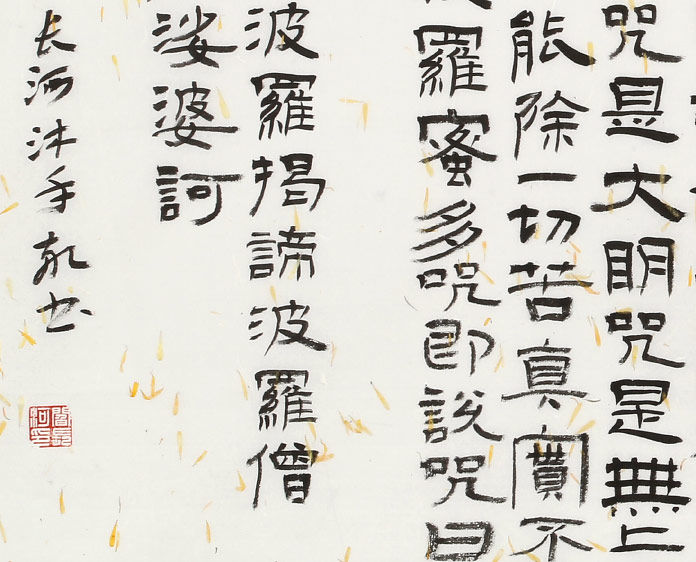 咒是大明咒是無上
能除一切苦真實不
羅蜜多咒即說咒曰
波羅揭諦波羅僧
娑婆訶
长河沐手敬书